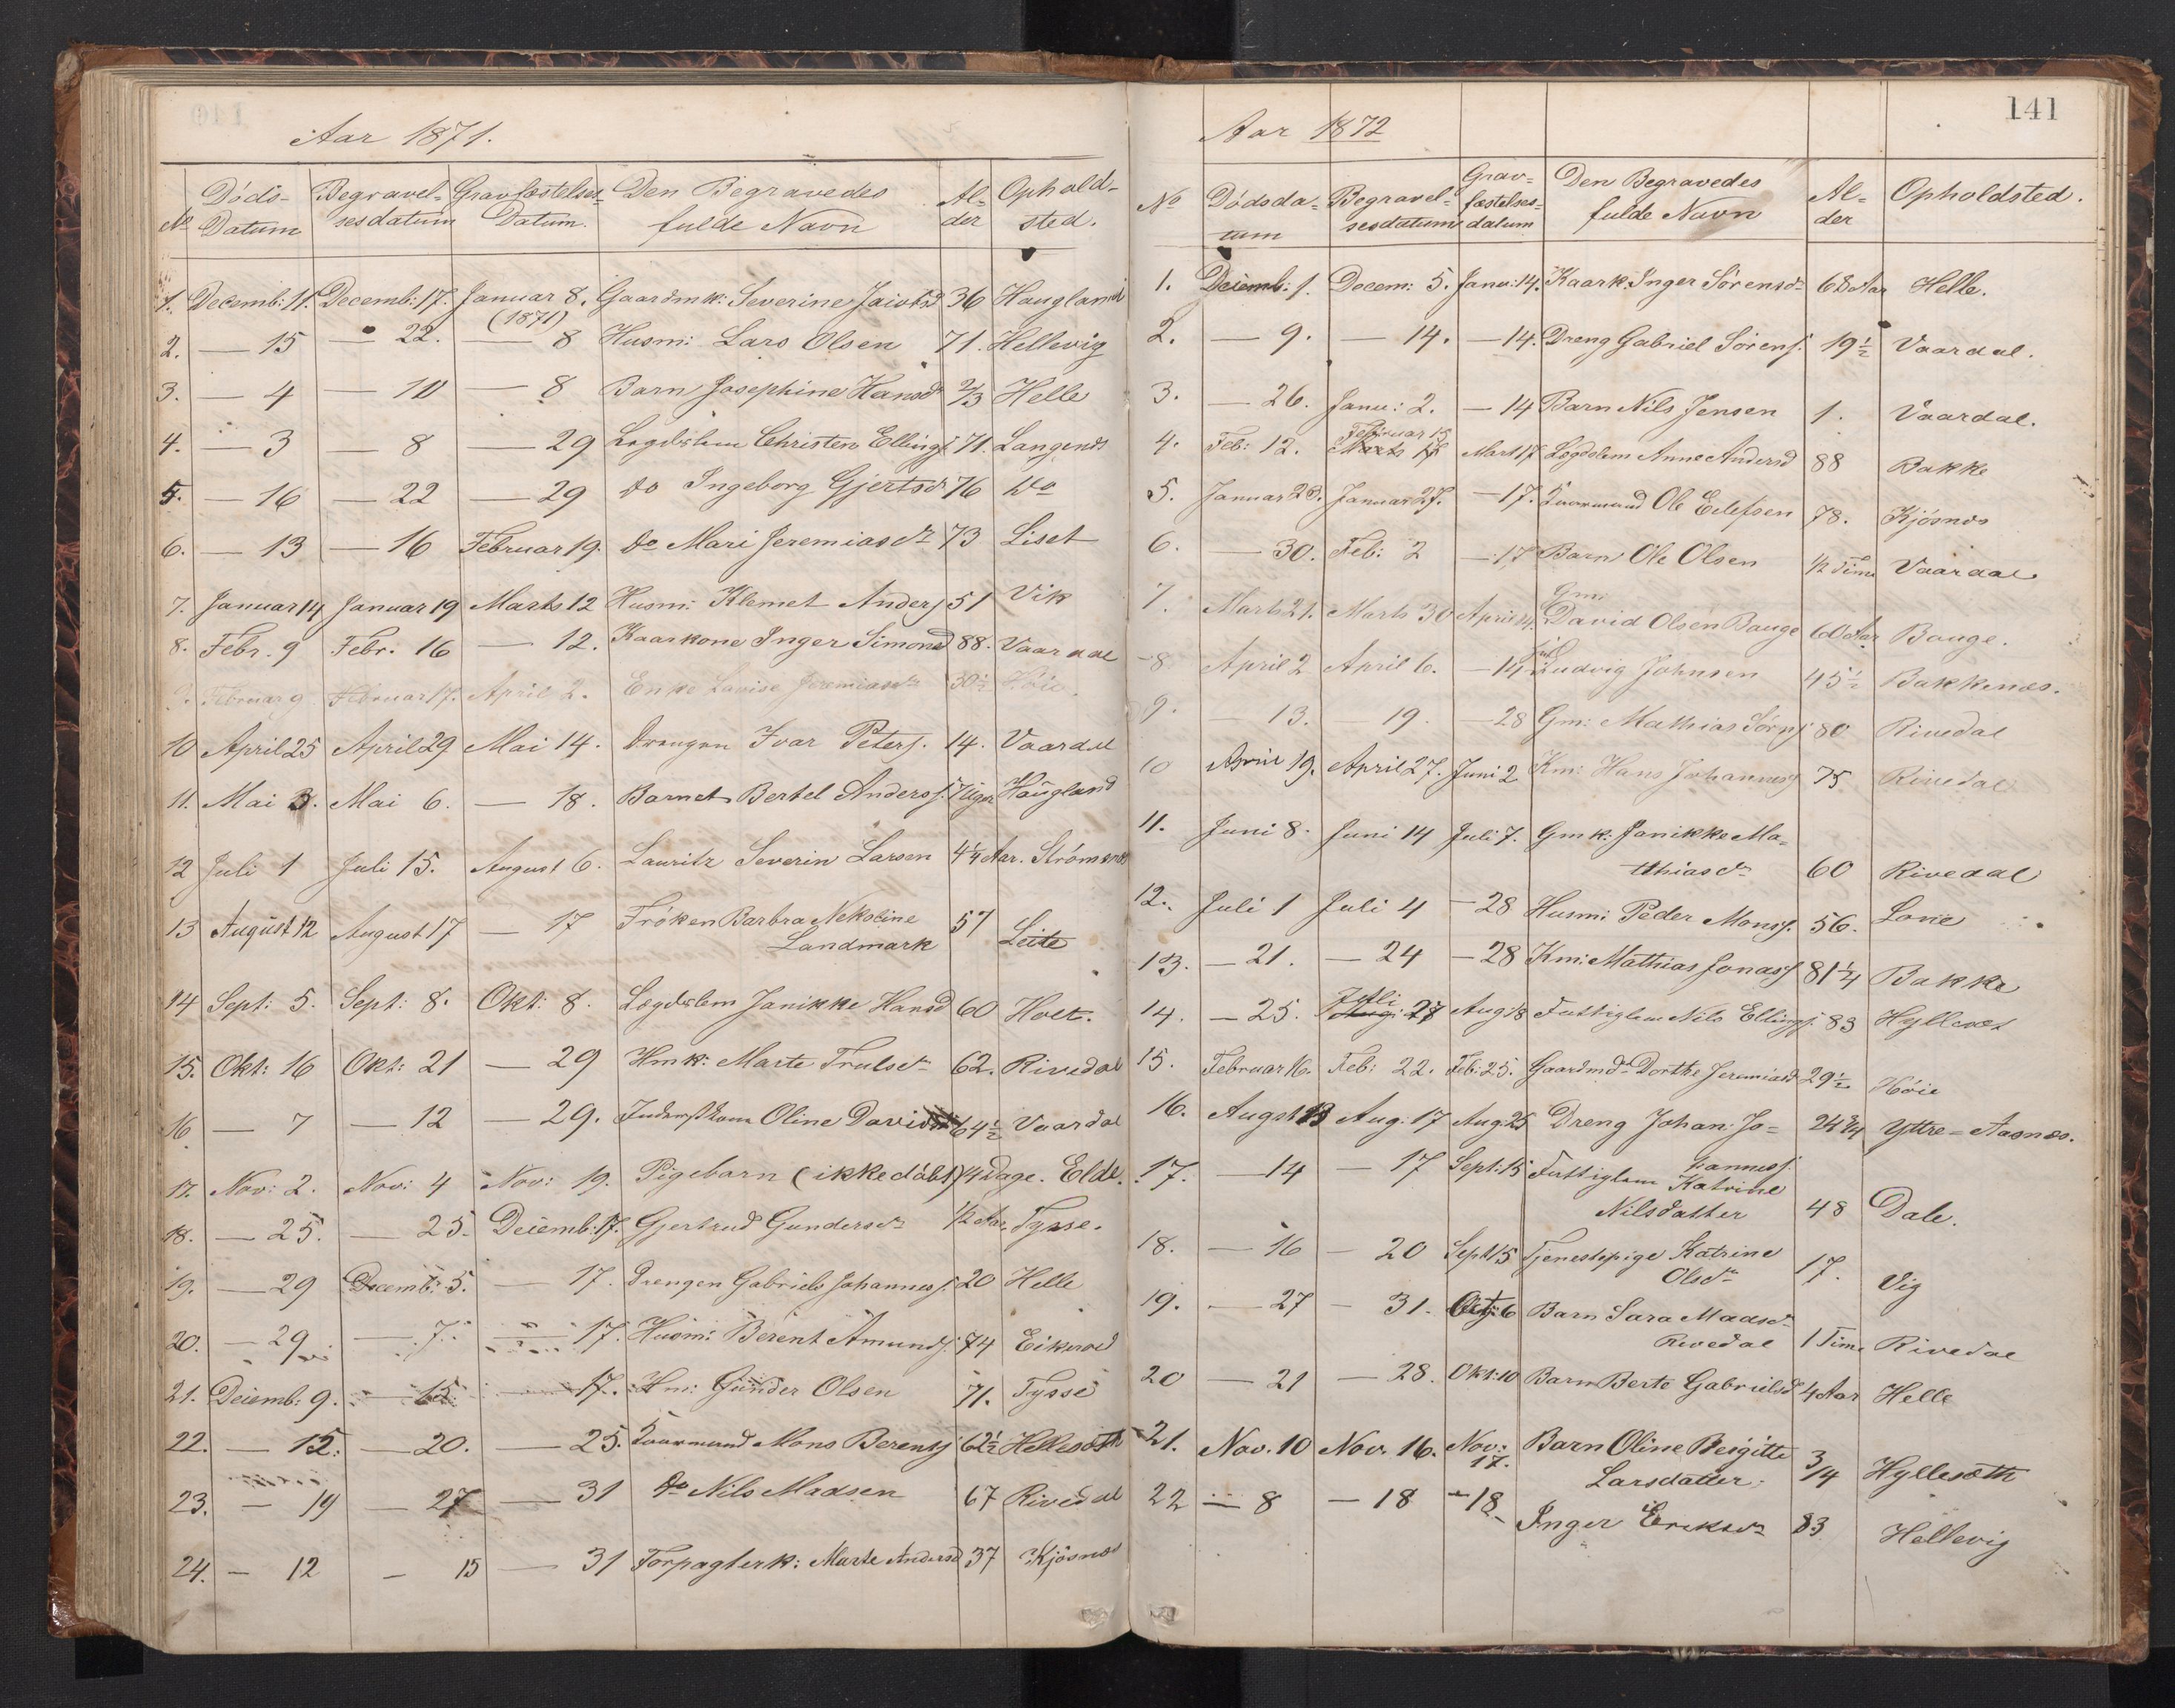 Aar 1871.
No Døds-Datum Begravel-sesdatum Gravfæstelses-Datum. Den Begravedes fulde Navn Al-der Ophold-sted.
1. Decemb: 11. Decemb: 17. Januar 8. (1871) Gaardmk: Severine Jaiotsd 36 Haugland
2. — 15 — 22. — 8 Husm: Lars Olsen 71. Hellevig
3. — 4 — 10 — 8 Barn Josephine Hansdr 2/3 Helle
4. — 3 — 8 — 29 Lægdslem Christen Ellings. 71. Langenes
5. — 16 — 22 — 29 do Ingeborg Gjertsdr 76 do
6. — 13 — 16 Februar 19. do Mari Jeremiasdr 73 Liset
7. Januar 14 Januar 19 Marts 12 Husm: Klemet Anders. 51 Vik
8. Febr. 9 Febr. 16 — 12. Kaarkone Inger Simonsd 88. Vaardal
9. Februar 9 Februar 17. April 2. Enke Lovise Jeremiasdr 30 1/2 Høie.
10 April 25 April 29 Mai 14. Drengen Ivar Peters. 14. Vaardal
11. Mai 3. Mai 6. — 18. Barnet Bertel Anders s. 7 Uger Haugland
12 Juli 1 Juli 15. August 6. Lauritz Severin Larsen 4 1/4 Aar. Strømsnes
13 August 12 August 17 — 17 Frøken Barbra Nekoline
Landmark 57 Leite
14 Sept: 5. Sept: 8. Okt: 8. Lægdslem Janikke Hansd 60 Holt.
15. Okt: 16 Okt: 21 — 29 Hmk: Marte Trulsdr 62. Rivedal
16 — 7 — 12 — 29. Inderstkone Oline Davidsd 64 1/2 Vaardal
17. Nov: 2. Nov: 4 Nov: 19. Pigebarn (ikke døbt) 14 Dage. Elde.
18. — 25. — 25. Decemb: 17. Gjertrud Gundersdr 1/2 Aar. Tysse.
19. — 29 Decemb: 5. — 17. Drengen Gabriels Johannes s. 20 Helle
20. — 29 — 7. — 17. Husm: Berent Amunds. 74 Eikerod
21. Decemb: 9. — 15. — 17. Hm: Gunder Olsen 71. Tysse
22. — 15. — 20. — 25. Kaarmand Mons Berents. 62 1/2 Hellesøth
23. — 19 — 27 — 31 do Nils Madsen 67 Rivedal
24. — 12 — 15 — 31 Forpagterk: Marte Andersd 37 Kjøsnes
141
Aar 1872
No Dødsda-tum Begravel-sesdatum Grav-fæstelses-datum Den Begravedes fulde Navn Al-der Opholdsted.
1. Decemb: 1. Decem: 5. Janu: 14. Kaark. Inger Sørensdr 68 Aar Helle.
2. — 9. — 14. — 14. Dreng Gabriel Sørens. 19 1/2 Vaardal.
3. — 26. Janu: 2. — 14 Barn Nils Jensen 1. Vaardal.
4. Feb: 12. Februar 15 Mart 17 Lægdslem Anne Andersd 88 Bakke
5. Januar 23. Januar 27. — 17. Kaarmand Ole Eilefsen 78. Kjøsnes
6. — 30. Feb: 2 — 17 Barn Ole Olsen 1/2 Time Vaardal
7. Marts 21. Marts 30 April 14. Gm: David Olsen Bauge 60 Aar Bauge.
8. April 2 April 6. — 14 Ludvig Johnsen 45 1/2 Bakkenes.
9. — 13. — 19. — 28 Gm: Mathias Sørns. 80 Rivedal
10 April 19. April 27. Juni 2 Km: Hans Johannes s. 75 Rivedal
11. Juni 8. Juni 14 Juli 7. Gmk: Janikke Ma-
tthiasdr 60 Rivedal
12. Juli 1 Juli 4 — 28 Husm: Peder Mons s. 56. Lone
13. — 21. — 24 — 28 Km: Mathias Jonas s 81 1/4 Bakke
14. — 25. Juli 27 Aug: 18 Fattiglem Nils Ellings s. 83 Hyllesøt
15. Februar 16. Feb: 22. Feb: 25. Gaardmdr Dorthe Jeremiasd 29 1/2 Høie
16. August 13 Aug: 17 Aug. 25 Dreng Johan: Jo-
hannes s. 24 3/4 Yttre-Aasnes.
17. — 14 — 17 Sept: 15 Fattiglem Katrine
Nilsdatter 48 Dale.
18. — 16 — 20 Sept 15 Tjenestepige Katrine
Olsdr 17. Vig
19. — 27 — 31. Okt: 6 Barn Sara Madsdr
Rivedal 1 Time Rivedal
20 — 21 — 28. Okt: 10 Barn Berte Gabrielsd 4 Aar Helle
21. Nov. 10 Nov. 16. Nov: 17. Barn Oline Bergitte
Larsdatter. 3/4 Hyllesøth
22 — 8 — 18 — 18 Inger Eriksdr 83 Hellevig